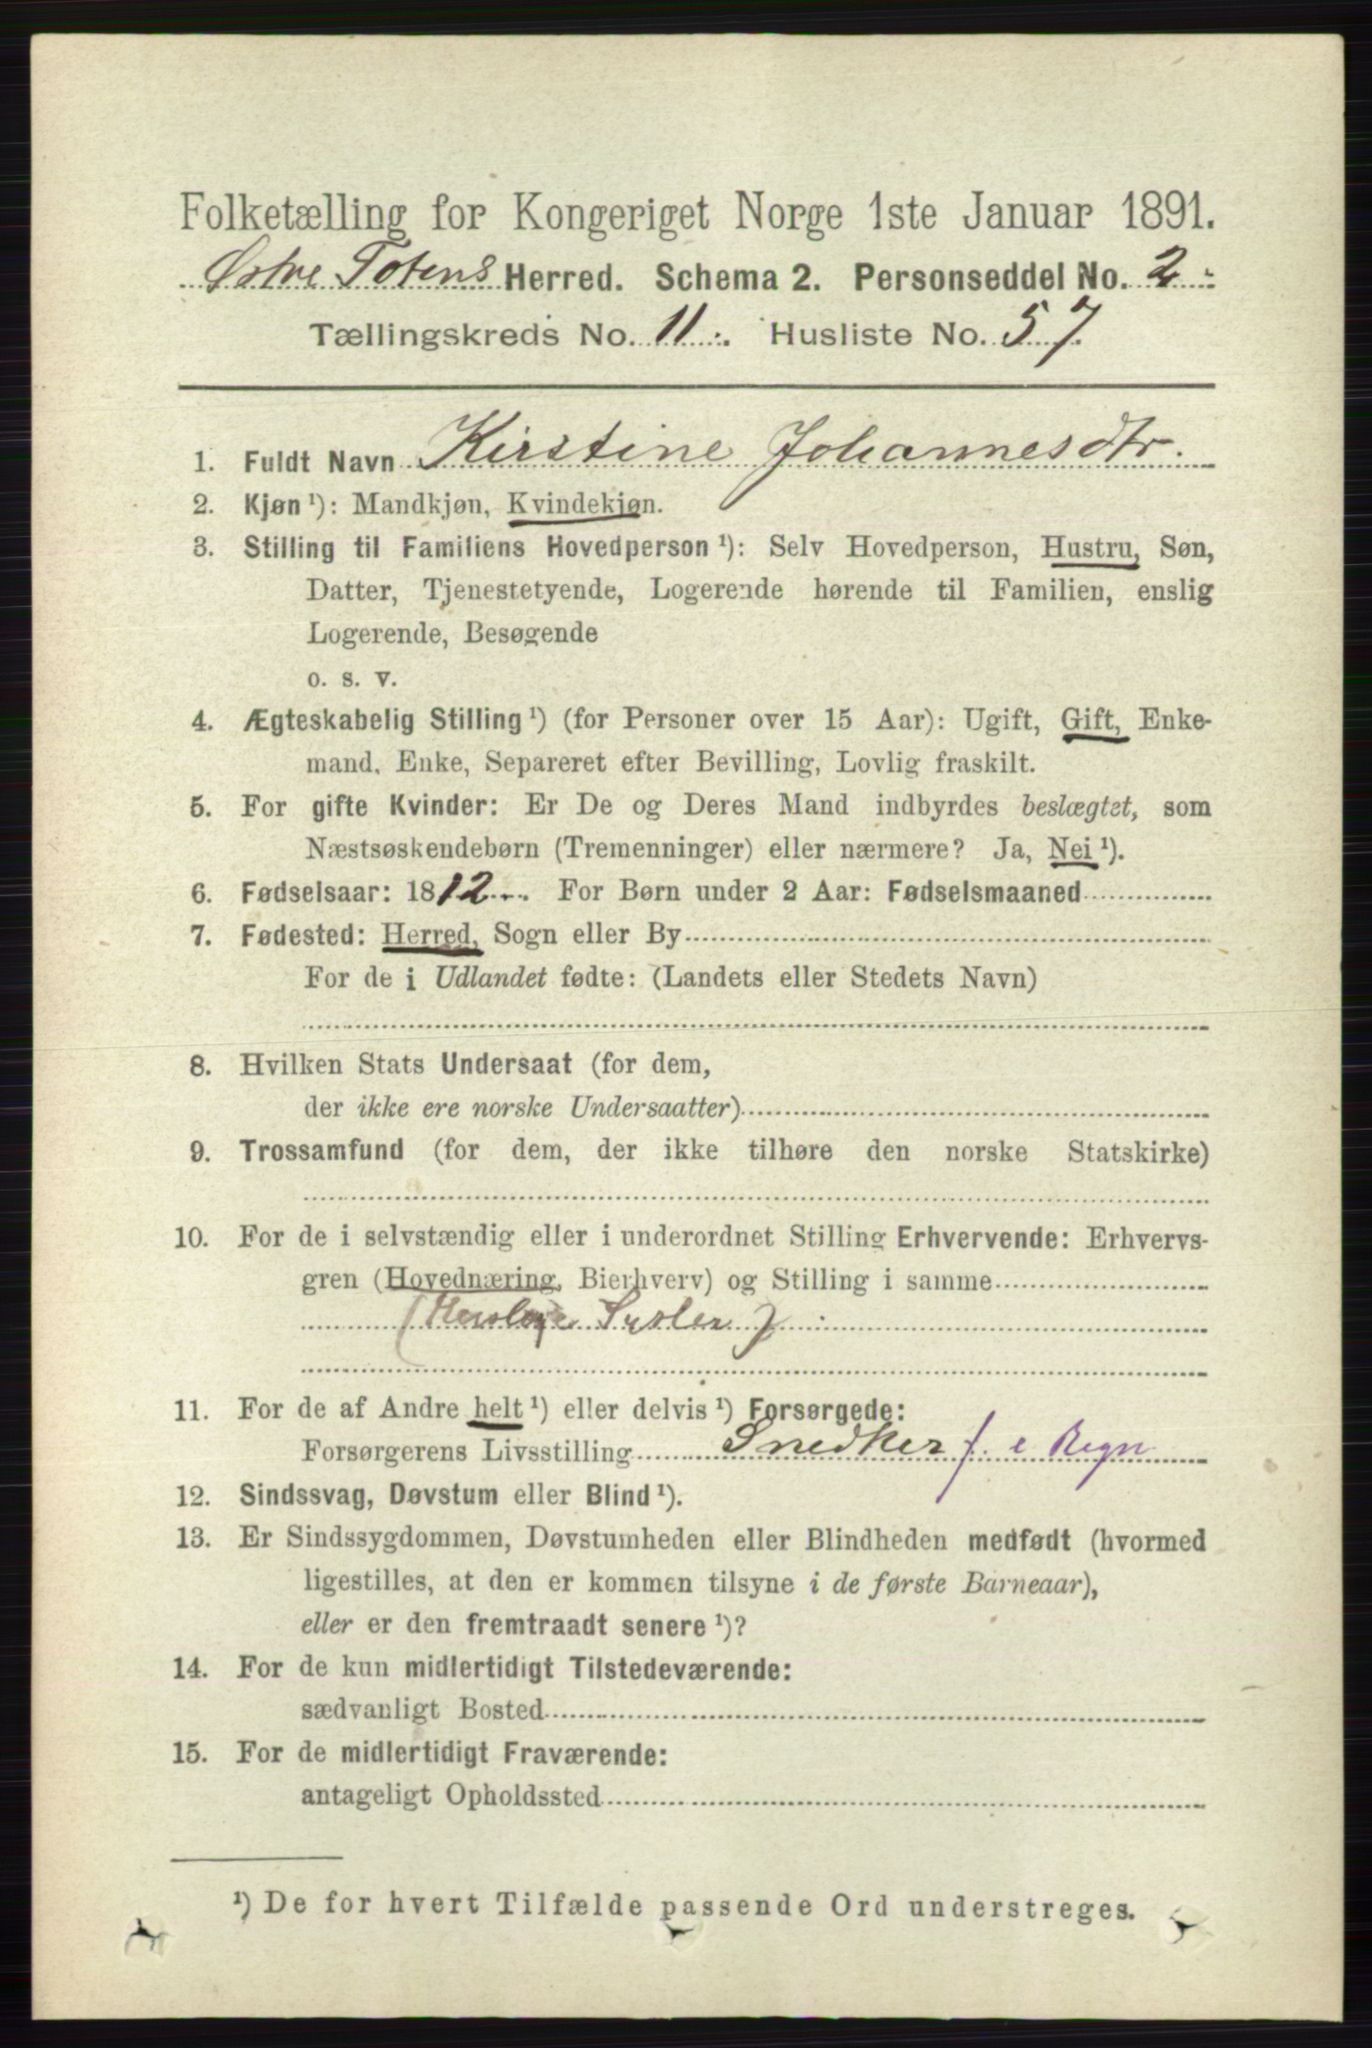 Folketælling for Kongeriget Norge 1ste Januar 1891.
Østre Totens Herred. Schema 2. Personseddel No. 2.
Tællingskreds No. 11. Husliste No. 57.
1. Fuldt Navn Kirstine Johannesdtr.
2. Kjøn ¹): Mandkjøn, Kvindekjøn.
3. Stilling til Familiens Hovedperson ¹): Selv Hovedperson, Hustru, Søn,
Datter, Tjenestetyende, Logerende hørende til Familien, enslig
Logerende, Besøgende
o. s. v.
4. Ægteskabelig Stilling ¹) (for Personer over 15 Aar): Ugift, Gift, Enke-
mand, Enke, Separeret efter Bevilling, Lovlig fraskilt.
5. For gifte Kvinder: Er De og Deres Mand indbyrdes beslægtet, som
Næstsøskendebørn (Tremenninger) eller nærmere? Ja, Nei ¹).
6. Fødselsaar: 1812. For Børn under 2 Aar: Fødselsmaaned
7. Fødested: Herred, Sogn eller By
For de i Udlandet fødte: (Landets eller Stedets Navn)
8. Hvilken Stats Undersaat (for dem,
der ikke ere norske Undersaatter)
9. Trossamfund (for dem, der ikke tilhøre den norske Statskirke)
10. For de i selvstændig eller i underordnet Stilling Erhvervende: Erhvervs-
gren (Hovednæring, Bierhverv) og Stilling i samme
11. For de af Andre helt ¹) eller delvis ¹) Forsørgede:
Forsørgerens Livsstilling Snedker f. e Regn
12. Sindssvag, Døvstum eller Blind ¹).
13. Er Sindssygdommen, Døvstumheden eller Blindheden medfødt (hvormed
ligestilles, at den er kommen tilsyne i de første Barneaar),
eller er den fremtraadt senere ¹)?
14. For de kun midlertidigt Tilstedeværende:
sædvanligt Bosted
15. For de midlertidigt Fraværende:
antageligt Opholdssted
¹) De for hvert Tilfælde passende Ord understreges.